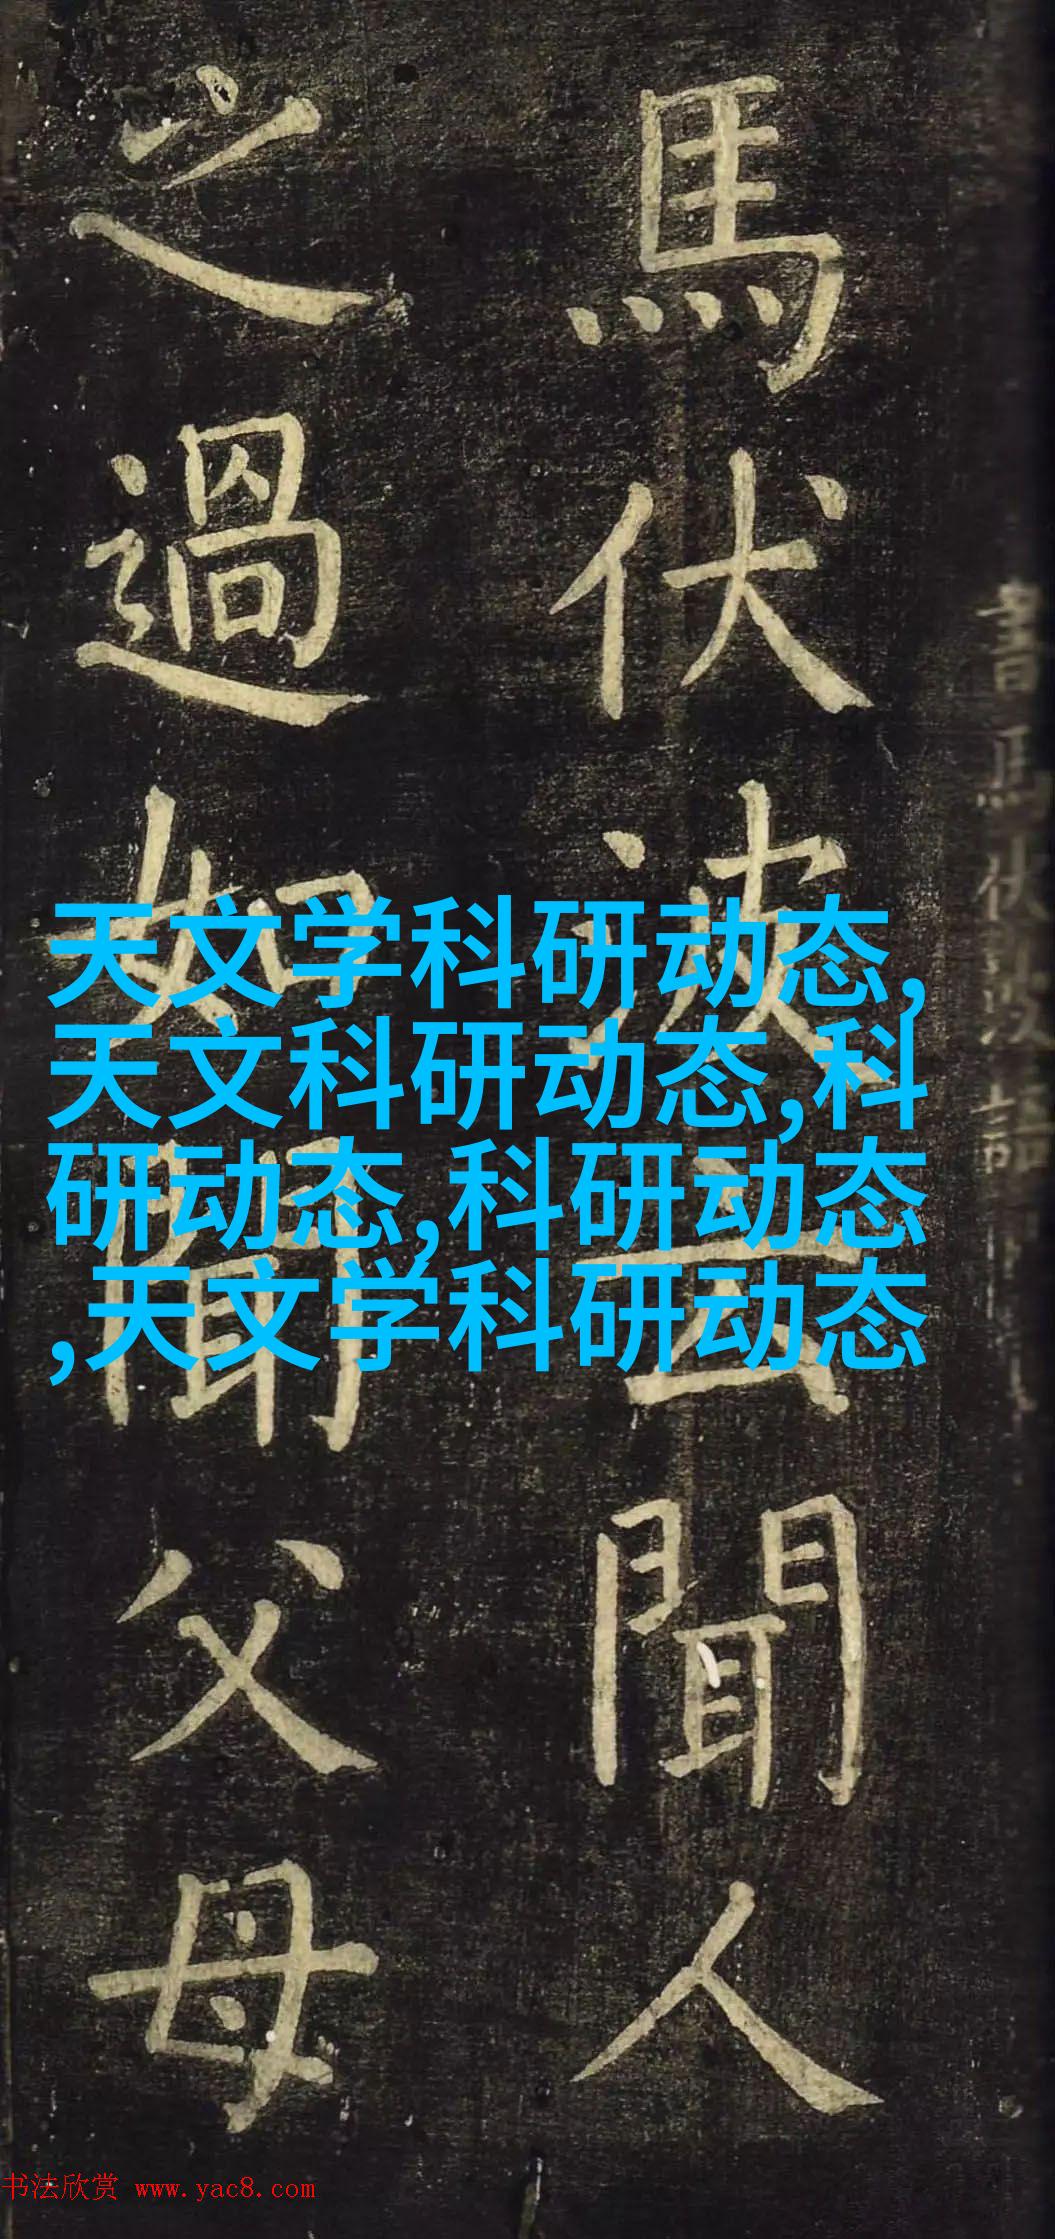 馬伏波云聞人
之過如聞父母
天文学科研动态,
天文科研动态,科
研动态,科研动态
,天文学科研动态
书法欣赏 www.yac8.com